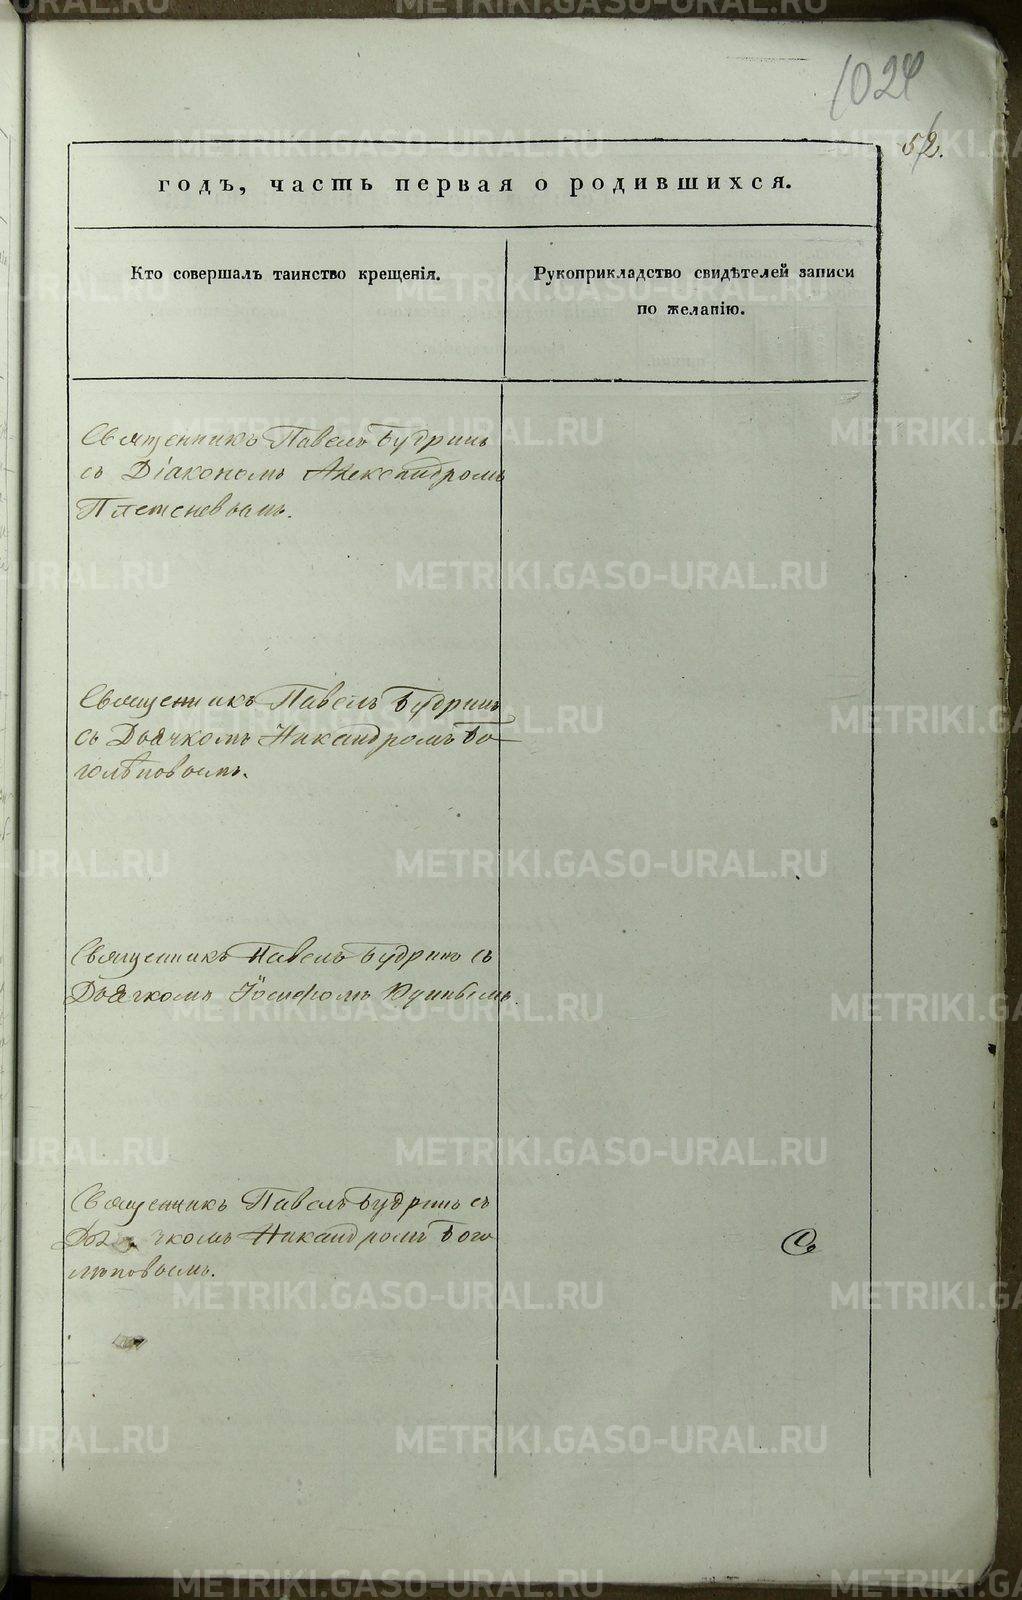 1024
52.
годъ, часть первая о родившихся.
Кто совершалъ таинство крещенія.
Рукоприкладство свидѣтелей записи
по желанію.
Священникъ Павелъ Будринъ
съ Діакономъ Александромъ
Плетеневымъ.
Священникъ Павелъ Будринъ
съ Дьячкомъ Никандромъ Бо-
голѣповымъ.
Священникъ Павелъ Будринъ съ
Дьячкомъ Іосифомъ
Священникъ Павелъ Будринъ съ
Дьячкомъ Никандромъ Бого
лѣповымъ.
METRIKI.GASO-URAL.RU